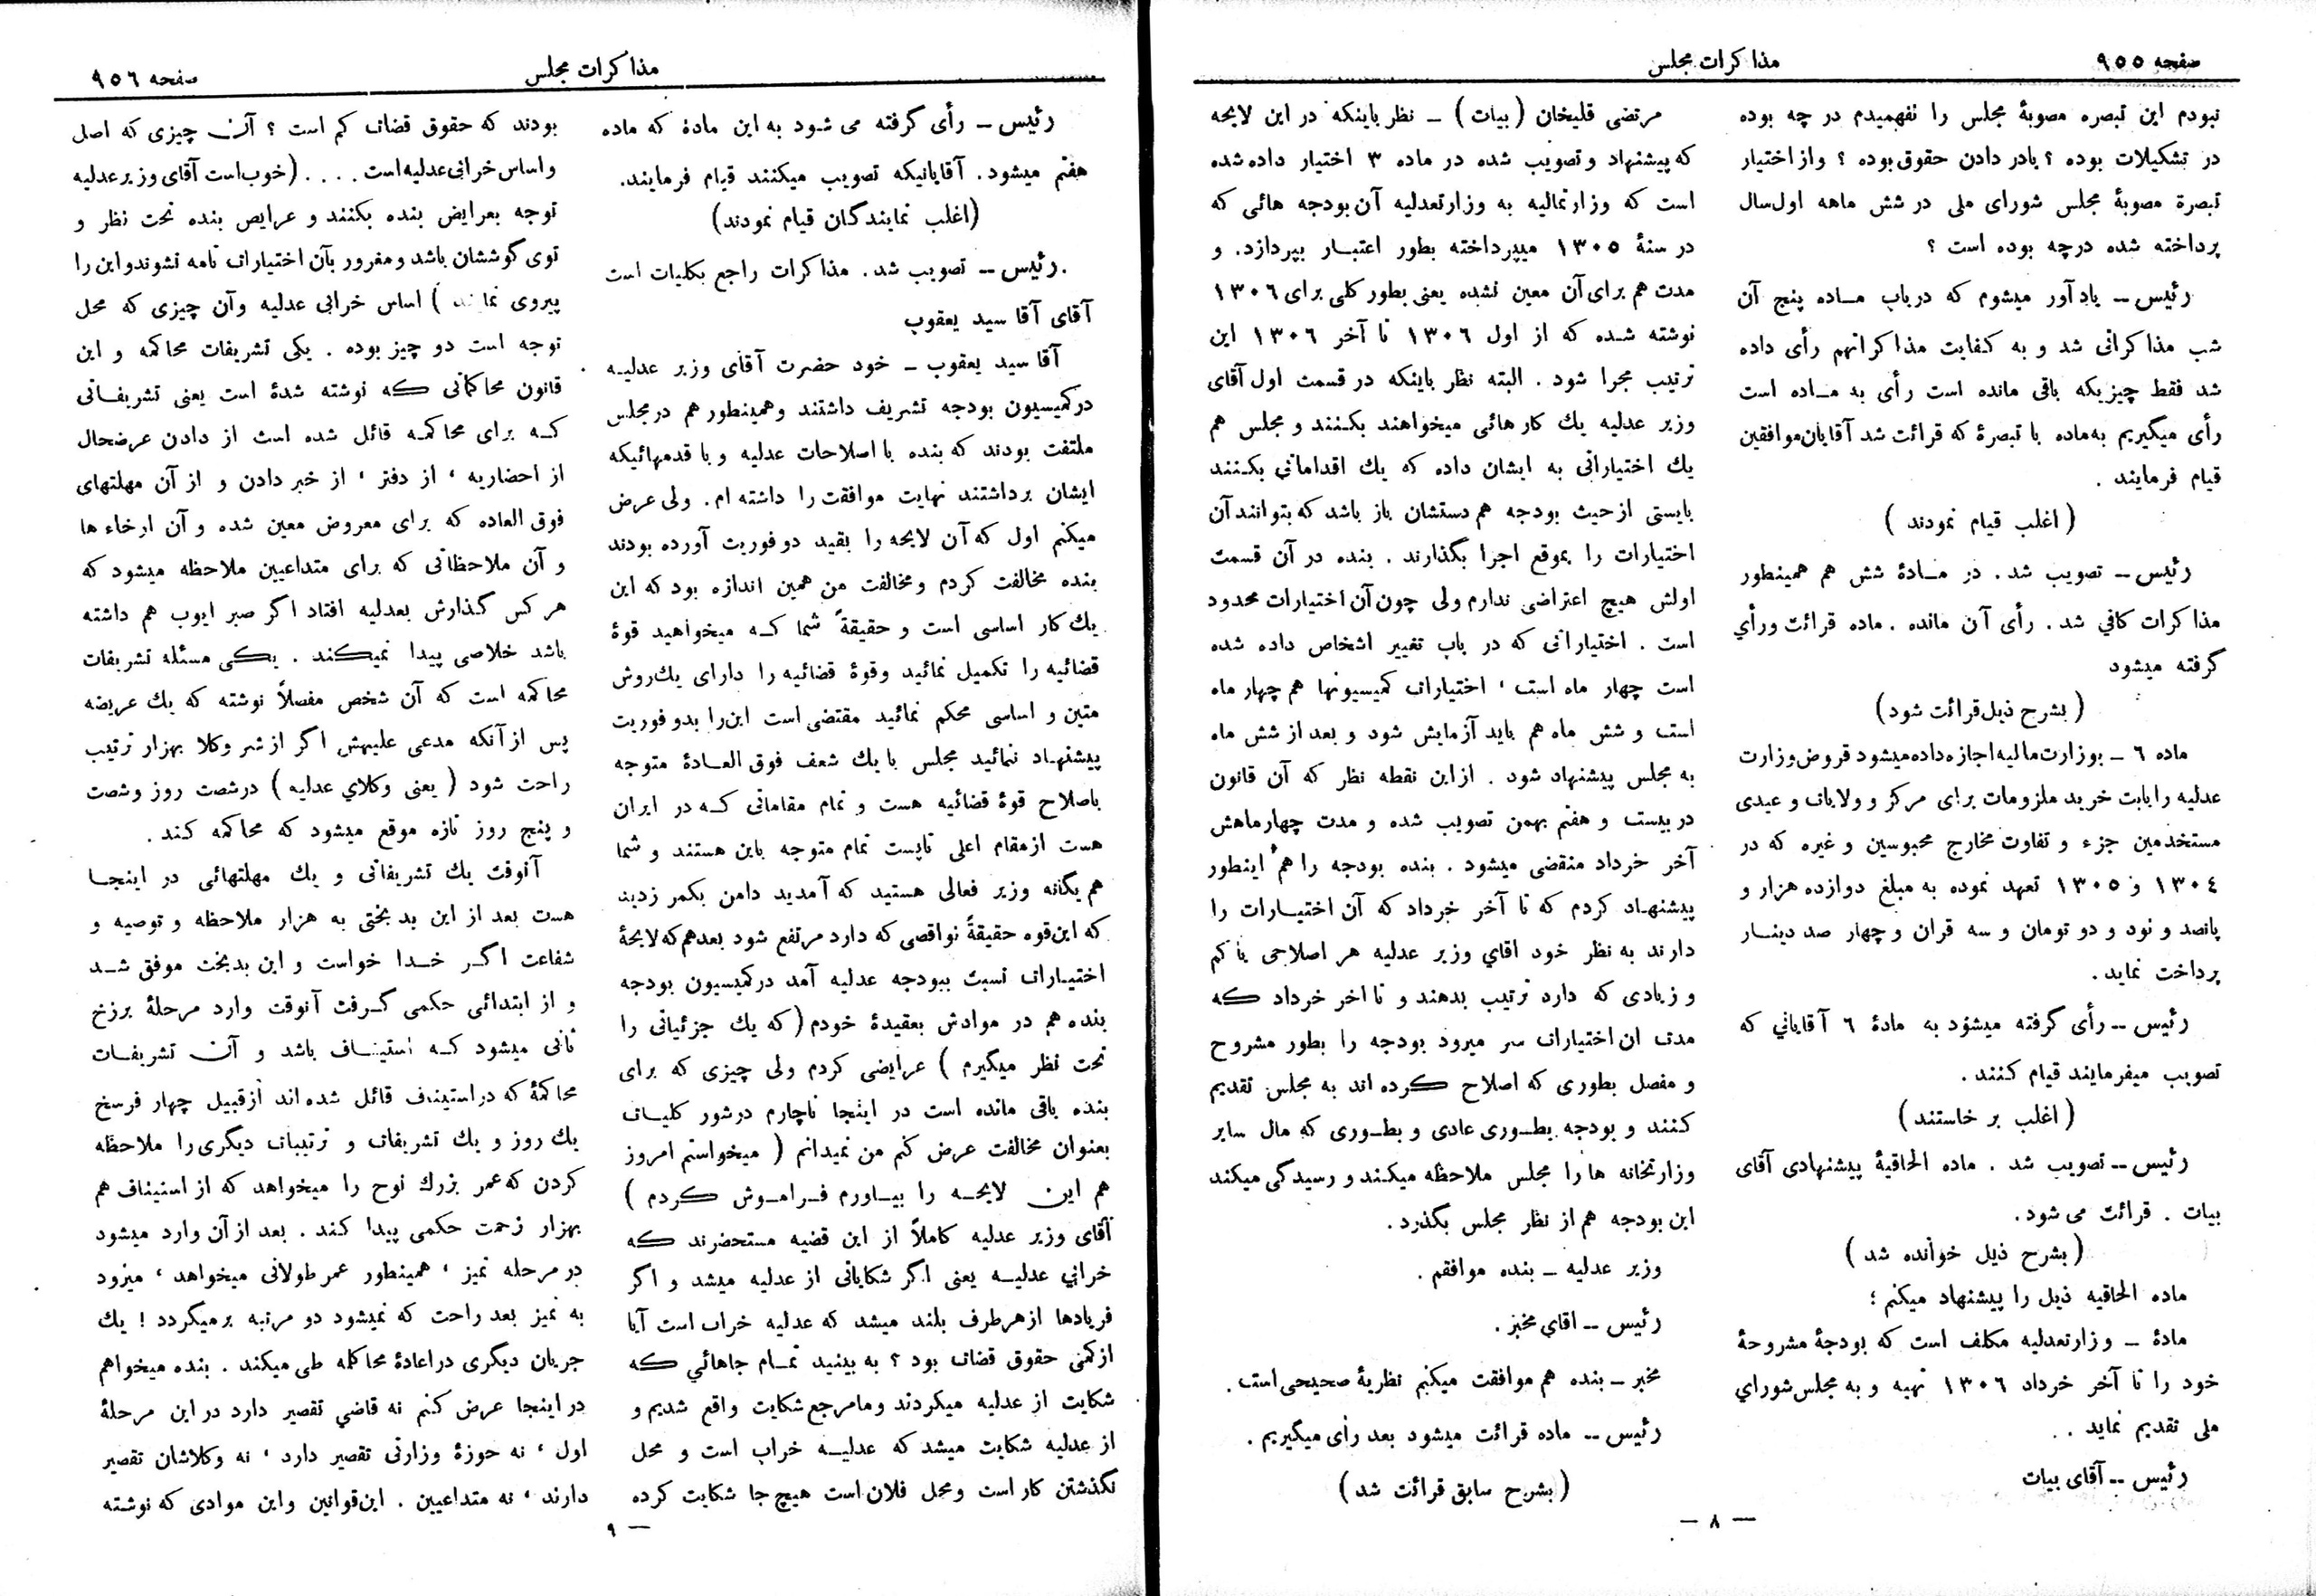 صفحه ۹۵۵
مذاکرات مجلس
نبودم این تبصره مصوبهٔ مجلس را نفهمیدم در چه بوده
در تشکیلات بوده ؟ یادر دادن حقوق بوده ؟ واز اختیار
تبصرة مصوبهٔ مجلس شورای ملی در شش ماهه اول سال
پرداخته شده درچه بوده است ؟
رئیس ــ یاد آور میشوم که درباب ماده پنج آن
شب مذاکراتی شد و به کفایت مذاکراتهم رأی داده
شد فقط چیزیکه باقی مانده است رأی به ماده است
رأی میگیریم به ماده با تبصرهٔ که قرائت شد آقایان موافقین
قیام فرمایند .
( اغلب قیام نمودند )
رئیس ــ تصویب شد . در مادهٔ شش هم همینطور
مذاکرات کافی شد . رأی آن مانده . ماده قرائت ورأی
گرفته میشود
( بشرح ذیل قرائت شود )
ماده ٦ ــ بوزارت مالیه اجازه داده میشود قروض وزارت
عدلیه را بابت خرید ملزومات برای مرکز و ولایات و عیدی
مستخدمین جزء و تفاوت مخارج محبوسین و غیره که در
١٣٠٤ و ١٣٠٥ تعهد نموده به مبلغ دوازده هزار و
پانصد و نود و دو تومان و سه قران و چهار صد دینار
پرداخت نماید .
رئیس ــ رأی گرفته میشود به مادهٔ ٦ آقایانی که
تصویب میفرمایند قیام کنند .
( اغلب بر خاستند )
رئیس ــ تصویب شد . ماده الحاقیهٔ پیشنهادی آقای
بیات . قرائت می شود .
( بشرح ذیل خوانده شد )
ماده الحاقیه ذیل را پیشنهاد میکنم ؛
مادهٔ ــ وزارتعدلیه مکلف است که بودجهٔ مشروحهٔ
خود را تا آخر خرداد ١٣٠٦ تهیه و به مجلس شورای
ملی تقدیم نماید . .
رئیس ــ آقای بیات
مرتضی قلیخان (بیات) ــ نظر باینکه در این لایحه
که پیشنهاد و تصویب شده در ماده ۳ اختیار داده شده
است که وزارتمالیه به وزارتعدلیه آن بودجه هائی که
در سنهٔ ١٣٠٥ میپرداخته بطور اعتبار بپردازد. و
مدت هم برای آن معین نشده یعنی بطور کلی برای ١٣٠٦
نوشته شده که از اول ١٣٠٦ تا آخر ١٣٠٦ این
ترتیب مجرا شود . البته نظر باینکه در قسمت اول آقای
وزیر عدلیه یك کارهائی میخواهند بکنند و مجلس هم
یك اختیاراتی به ایشان داده که یك اقداماتی بکنند
بایستی از حیث بودجه هم دستشان باز باشد که بتوانند آن
اختیارات را بموقع اجرا بگذارند . بنده در آن قسمت
اولش هیچ اعتراضی ندارم ولی چون آن اختیارات محدود
است . اختیاراتی که در باب تغییر اشخاص داده شده
است چهار ماه است ، اختیارات کمیسیونها هم چهار ماه
است و شش ماه هم باید آزمایش شود و بعد از شش ماه
به مجلس پیشنهاد شود . از این نقطه نظر که آن قانون
در بیست و هفتم بهمن تصویب شده و مدت چهارماهش
آخر خرداد منقضی میشود . بنده بودجه را هم اینطور
پیشنهاد کردم که تا آخر خرداد که آن اختیارات را
دارند به نظر خود اقای وزیر عدلیه هر اصلاحی یا کم
و زیادی که دارد ترتیب بدهند و تا اخر خرداد که
مدت ان اختیارات سر میرود بودجه را بطور مشروح
و مفصل بطوری که اصلاح کرده اند به مجلس تقدیم
کنند و بودجه بطوری عادی و بطوری که مال سایر
وزارتخانه ها را مجلس ملاحظه میکند و رسیدگی میکند
این بودجه هم از نظر مجلس بگذرد .
وزیر عدلیه ــ بنده موافقم .
رئیس ــ اقای مخبر .
مخبر ــ بنده هم موافقت میکنم نظریهٔ صحیحی است .
رئیس ــ ماده قرائت میشود بعد رأی میگیریم .
( بشرح سابق قرائت شد )
— ۸ —
مذاکرات مجلس
صفحه ۹٥٦
رئیس ــ رأی گرفته می شود به این مادهٔ که ماده
هفتم میشود . آقایانیکه تصویب میکنند قیام فرمایند.
(اغلب نمایندگان قیام نمودند)
رئیس ــ تصویب شد . مذاکرات راجع بکلیات است
آقای آقا سید یعقوب
آقا سید یعقوب ــ خود حضرت آقای وزیر عدلیه
در کمیسیون بودجه تشریف داشتند و همینطور هم در مجلس
ملتفت بودند که بنده با اصلاحات عدلیه و با قدمهائیکه
ایشان برداشتند نهایت موافقت را داشته ام. ولی عرض
میکنم اول که آن لایحه را بقید دو فوریت آورده بودند
بنده مخالفت کردم و مخالفت من همین اندازه بود که این
یك کار اساسی است و حقیقةً شما که میخواهید قوهٔ
قضائیه را تکمیل نمائید و قوهٔ قضائیه را دارای یك روش
متین و اساسی محکم نمائید مقتضی است این را بدو فوریت
پیشنهاد ننمائید مجلس با یك شعف فوق العادهٔ متوجه
باصلاح قوهٔ قضائیه هست و تمام مقاماتی که در ایران
هست از مقام اعلی تا پست تمام متوجه باین هستند و شما
هم یگانه وزیر فعالی هستید که آمدید دامن بکمر زدید
که این قوه حقیقةً نواقصی که دارد مرتفع شود بعد هم که لایحهٔ
اختیارات نسبت ببودجه عدلیه آمد در کمیسیون بودجه
بنده هم در موادش بعقیدهٔ خودم ( که یك جزئیاتی را
تحت نظر میگیرم ) عرایضی کردم ولی چیزی که برای
بنده باقی مانده است در اینجا ناچارم در شور کلیات
بعنوان مخالفت عرض کنم من نمیدانم ( میخواستم امروز
هم این لایحه را بیاورم فراموش کردم )
آقای وزیر عدلیه کاملاً از این قضیه مستحضرند که
خرابی عدلیه یعنی اگر شکایاتی از عدلیه میشد و اگر
فریادها از هر طرف بلند میشد که عدلیه خراب است آیا
از کمی حقوق قضات بود ؟ به بینید تمام جاهائی که
شکایت از عدلیه میکردند و مامرجع شکایت واقع شدیم و
از عدلیه شکایت میشد که عدلیه خراب است و محل
نگذشتن کار است و محل فلان است هیچ جا شکایت کرده
بودند که حقوق قضات کم است ؟ آن چیزی که اصل
و اساس خرابی عدلیه است . . . . (خوب است آقای وزیر عدلیه
توجه بعرایض بنده بکنند و عرایض بنده تحت نظر و
توی گوششان باشد و مغرور بآن اختیارات نامه نشوند و این را
پیروی نمایند ) اساس خرابی عدلیه وآن چیزی که محل
توجه است دو چیز بوده . یکی تشریفات محاکمه و این
قانون محاکماتی که نوشته شدهٔ است یعنی تشریفاتی
که برای محاکمه قائل شده است از دادن عرضحال
از احضاریه ، از دفتر ، از خبر دادن و از آن مهلتهای
فوق العاده که برای معروض معین شده و آن ارخاء ها
و آن ملاحظاتی که برای متداعیین ملاحظه میشود که
هر کس گذارش بعدلیه افتاد اگر صبر ایوب هم داشته
باشد خلاصی پیدا نمیکند . یکی مسئله تشریفات
محاکمه است که آن شخص مفصلاً نوشته که یك عریضه
پس از آنکه مدعی علیهش اگر از شر وکلا بهزار ترتیب
راحت شود ( یعنی وکلای عدلیه ) در شصت روز وشصت
و پنج روز تازه موقع میشود که محاکمه کند .
آنوقت یك تشریفاتی و یك مهلتهائی در اینجا
هست بعد از این بدبختی به هزار ملاحظه و توصیه و
شفاعت اگر خدا خواست و این بدبخت موفق شد
و از ابتدائی حکمی گرفت آنوقت وارد مرحلهٔ برزخ
ثانی میشود که استیناف باشد و آن تشریفات
محاکمهٔ که در استیناف قائل شده اند از قبیل چهار فرسخ
یك روز و یك تشریفات و ترتیبات دیگری را ملاحظه
کردن که عمر بزرك نوح را میخواهد که از استیناف هم
بهزار زحمت حکمی پیدا کند . بعد از آن وارد میشود
در مرحله تمیز ، همینطور عمر طولانی میخواهد ، میرود
به تمیز بعد راحت که نمیشود دو مرتبه بر میگردد ! یك
جریان دیگری در اعادهٔ محاکمه طی میکند . بنده میخواهم
در اینجا عرض کنم نه قاضی تقصیر دارد در این مرحلهٔ
اول ، نه حوزهٔ وزارتی تقصیر دارد ، نه وکلاشان تقصیر
دارند ، نه متداعیین . این قوانین واین موادی که نوشته
— ۹